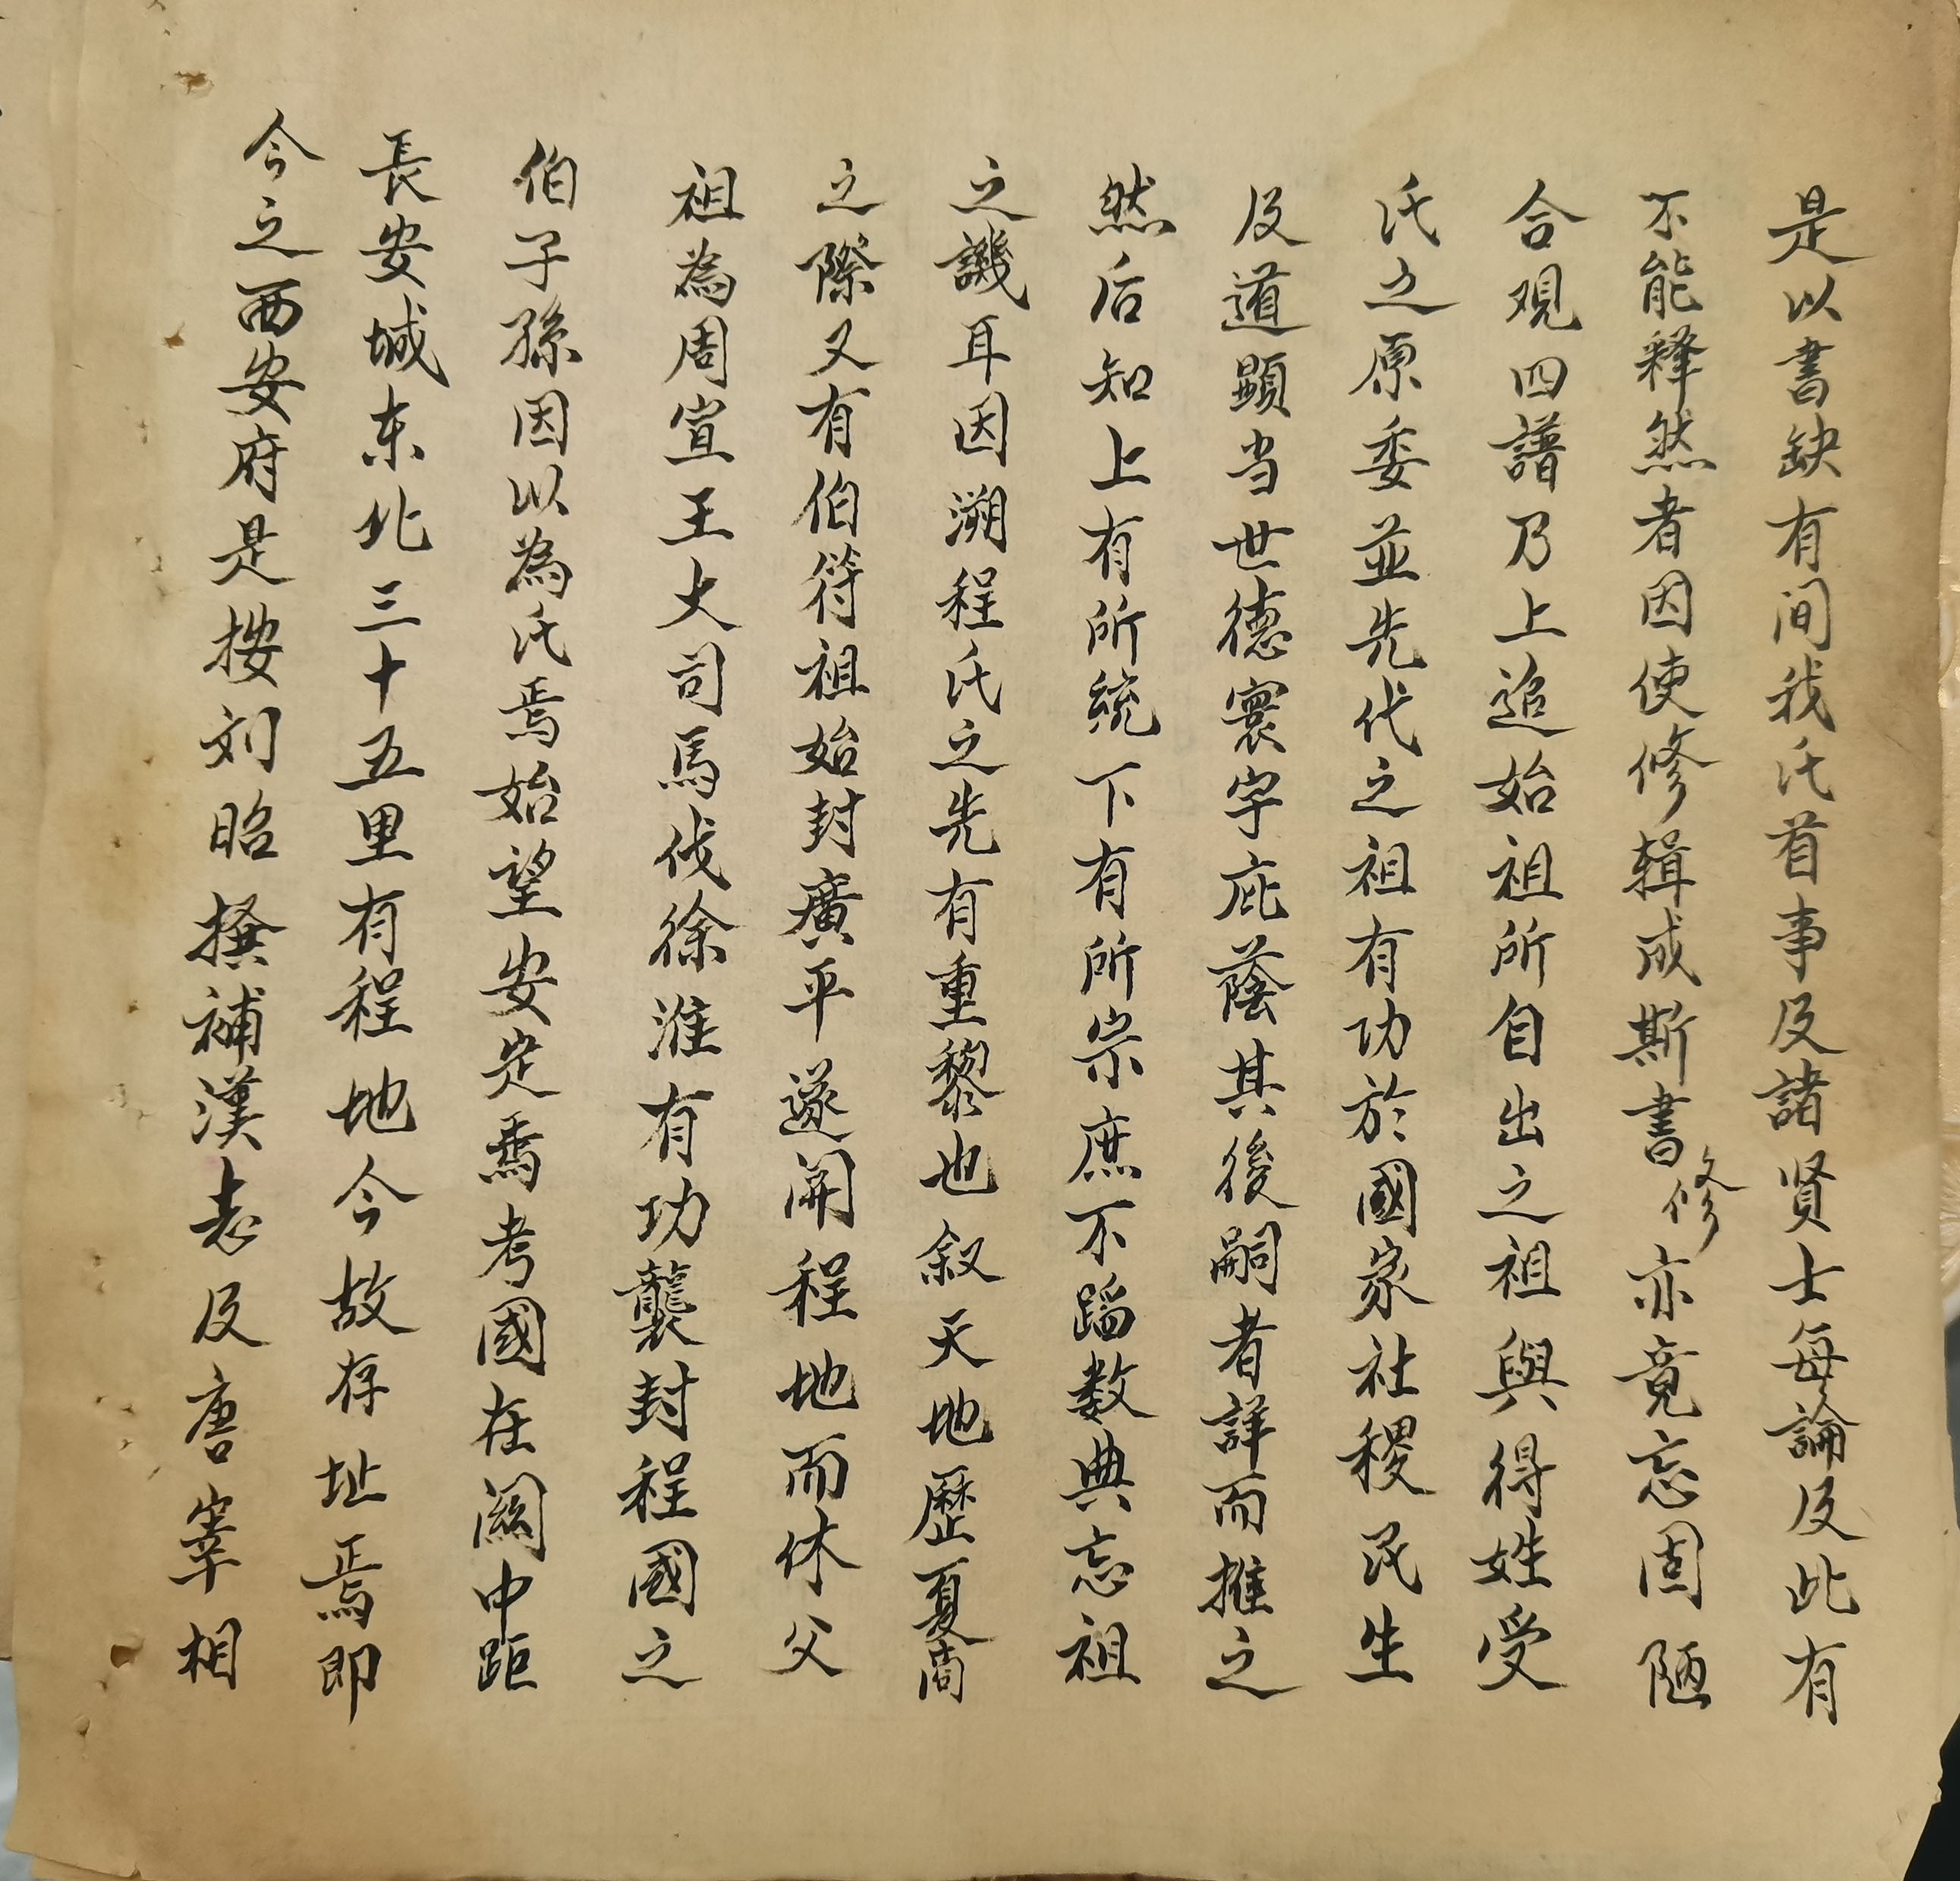 是以書缺有间我氏首事及諸贤士每論及此有
不能释然者因使修辑成斯書修亦竟忘固陋
合观四譜乃上追始祖所自出之祖與得姓受
氏之原委並先代之祖有功於國家社稷民生
及道顕当世德寰宇庇蔭其後嗣者詳而推之
然后知上有所統下有所宗庶不蹈数典忘祖
之譏耳因溯程氏之先有重黎也叙天地歷夏商
之際又有伯符祖始封廣平遂開程地而休父
祖為周宣王大司馬伐徐淮有功襲封程國之
伯子孫因以為氏焉始望安定焉考國在關中距
長安城东北三十五里有程地今故存址焉即
今之西安府是按刘昭撰補漢志及唐宰相